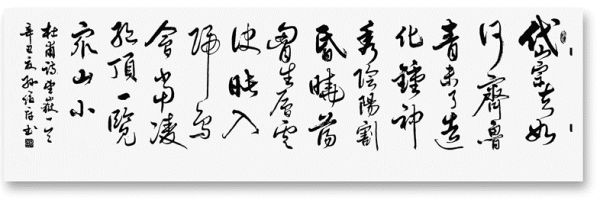 岱宗夫如
何齊魯
青未了造
化鍾神
秀陰陽割
昏曉蕩
胸生層雲
決眥入
歸鳥
會當凌
絕頂一覽
眾山小
杜甫詩望嶽一首
辛丑夏孫